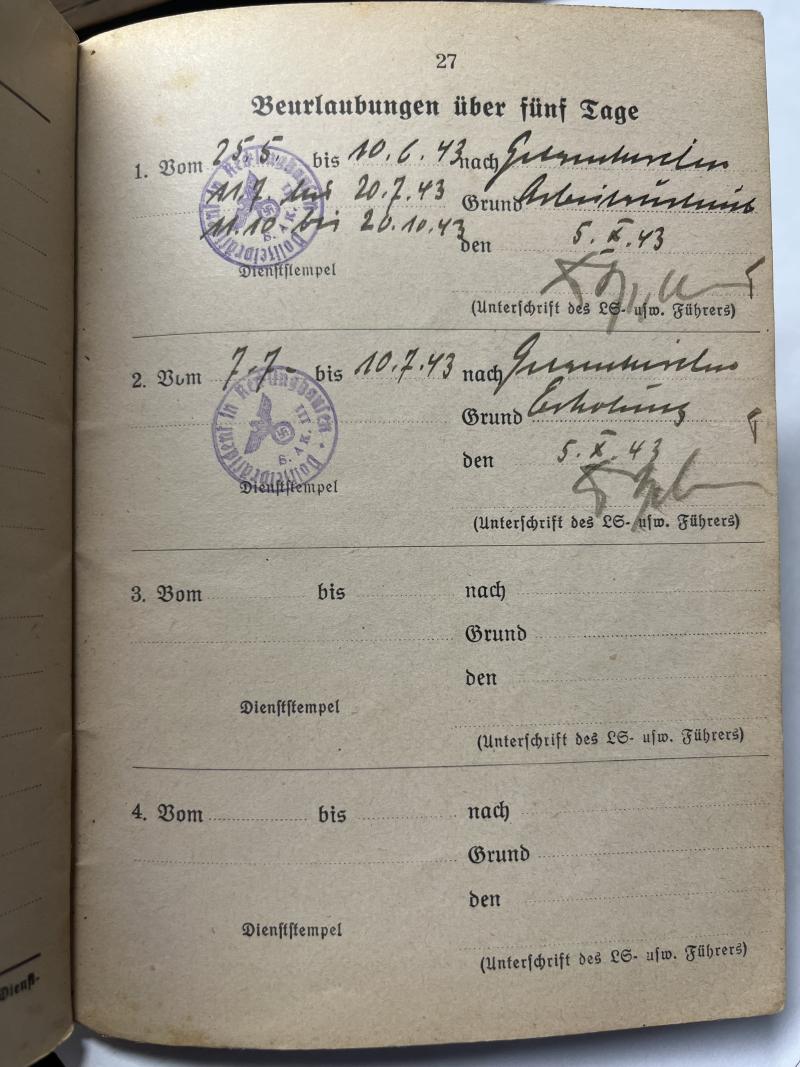 27
Beurlaubungen über fünf Tage
1. Vom 25.5. bis 10.6.43 nach Gelsenkirchen
11.7. bis 20.7.43 Grund Arbeitsurlaub
11.10 bis 20.10.43 den 5.X.43
Dienststempel
(Unterschrift des LS- usw. Führers)
Polizeipräsident in Recklinghausen
III
2. Vom 7.7. bis 10.7.43 nach Gelsenkirchen
Grund Erholung
den 5.X.43
Dienststempel
(Unterschrift des LS- usw. Führers)
Polizeipräsident in Recklinghausen
III
3. Vom bis nach
Grund
den
Dienststempel
(Unterschrift des LS- usw. Führers)
4. Vom bis nach
Grund
den
Dienststempel
(Unterschrift des LS- usw. Führers)
Dienst-